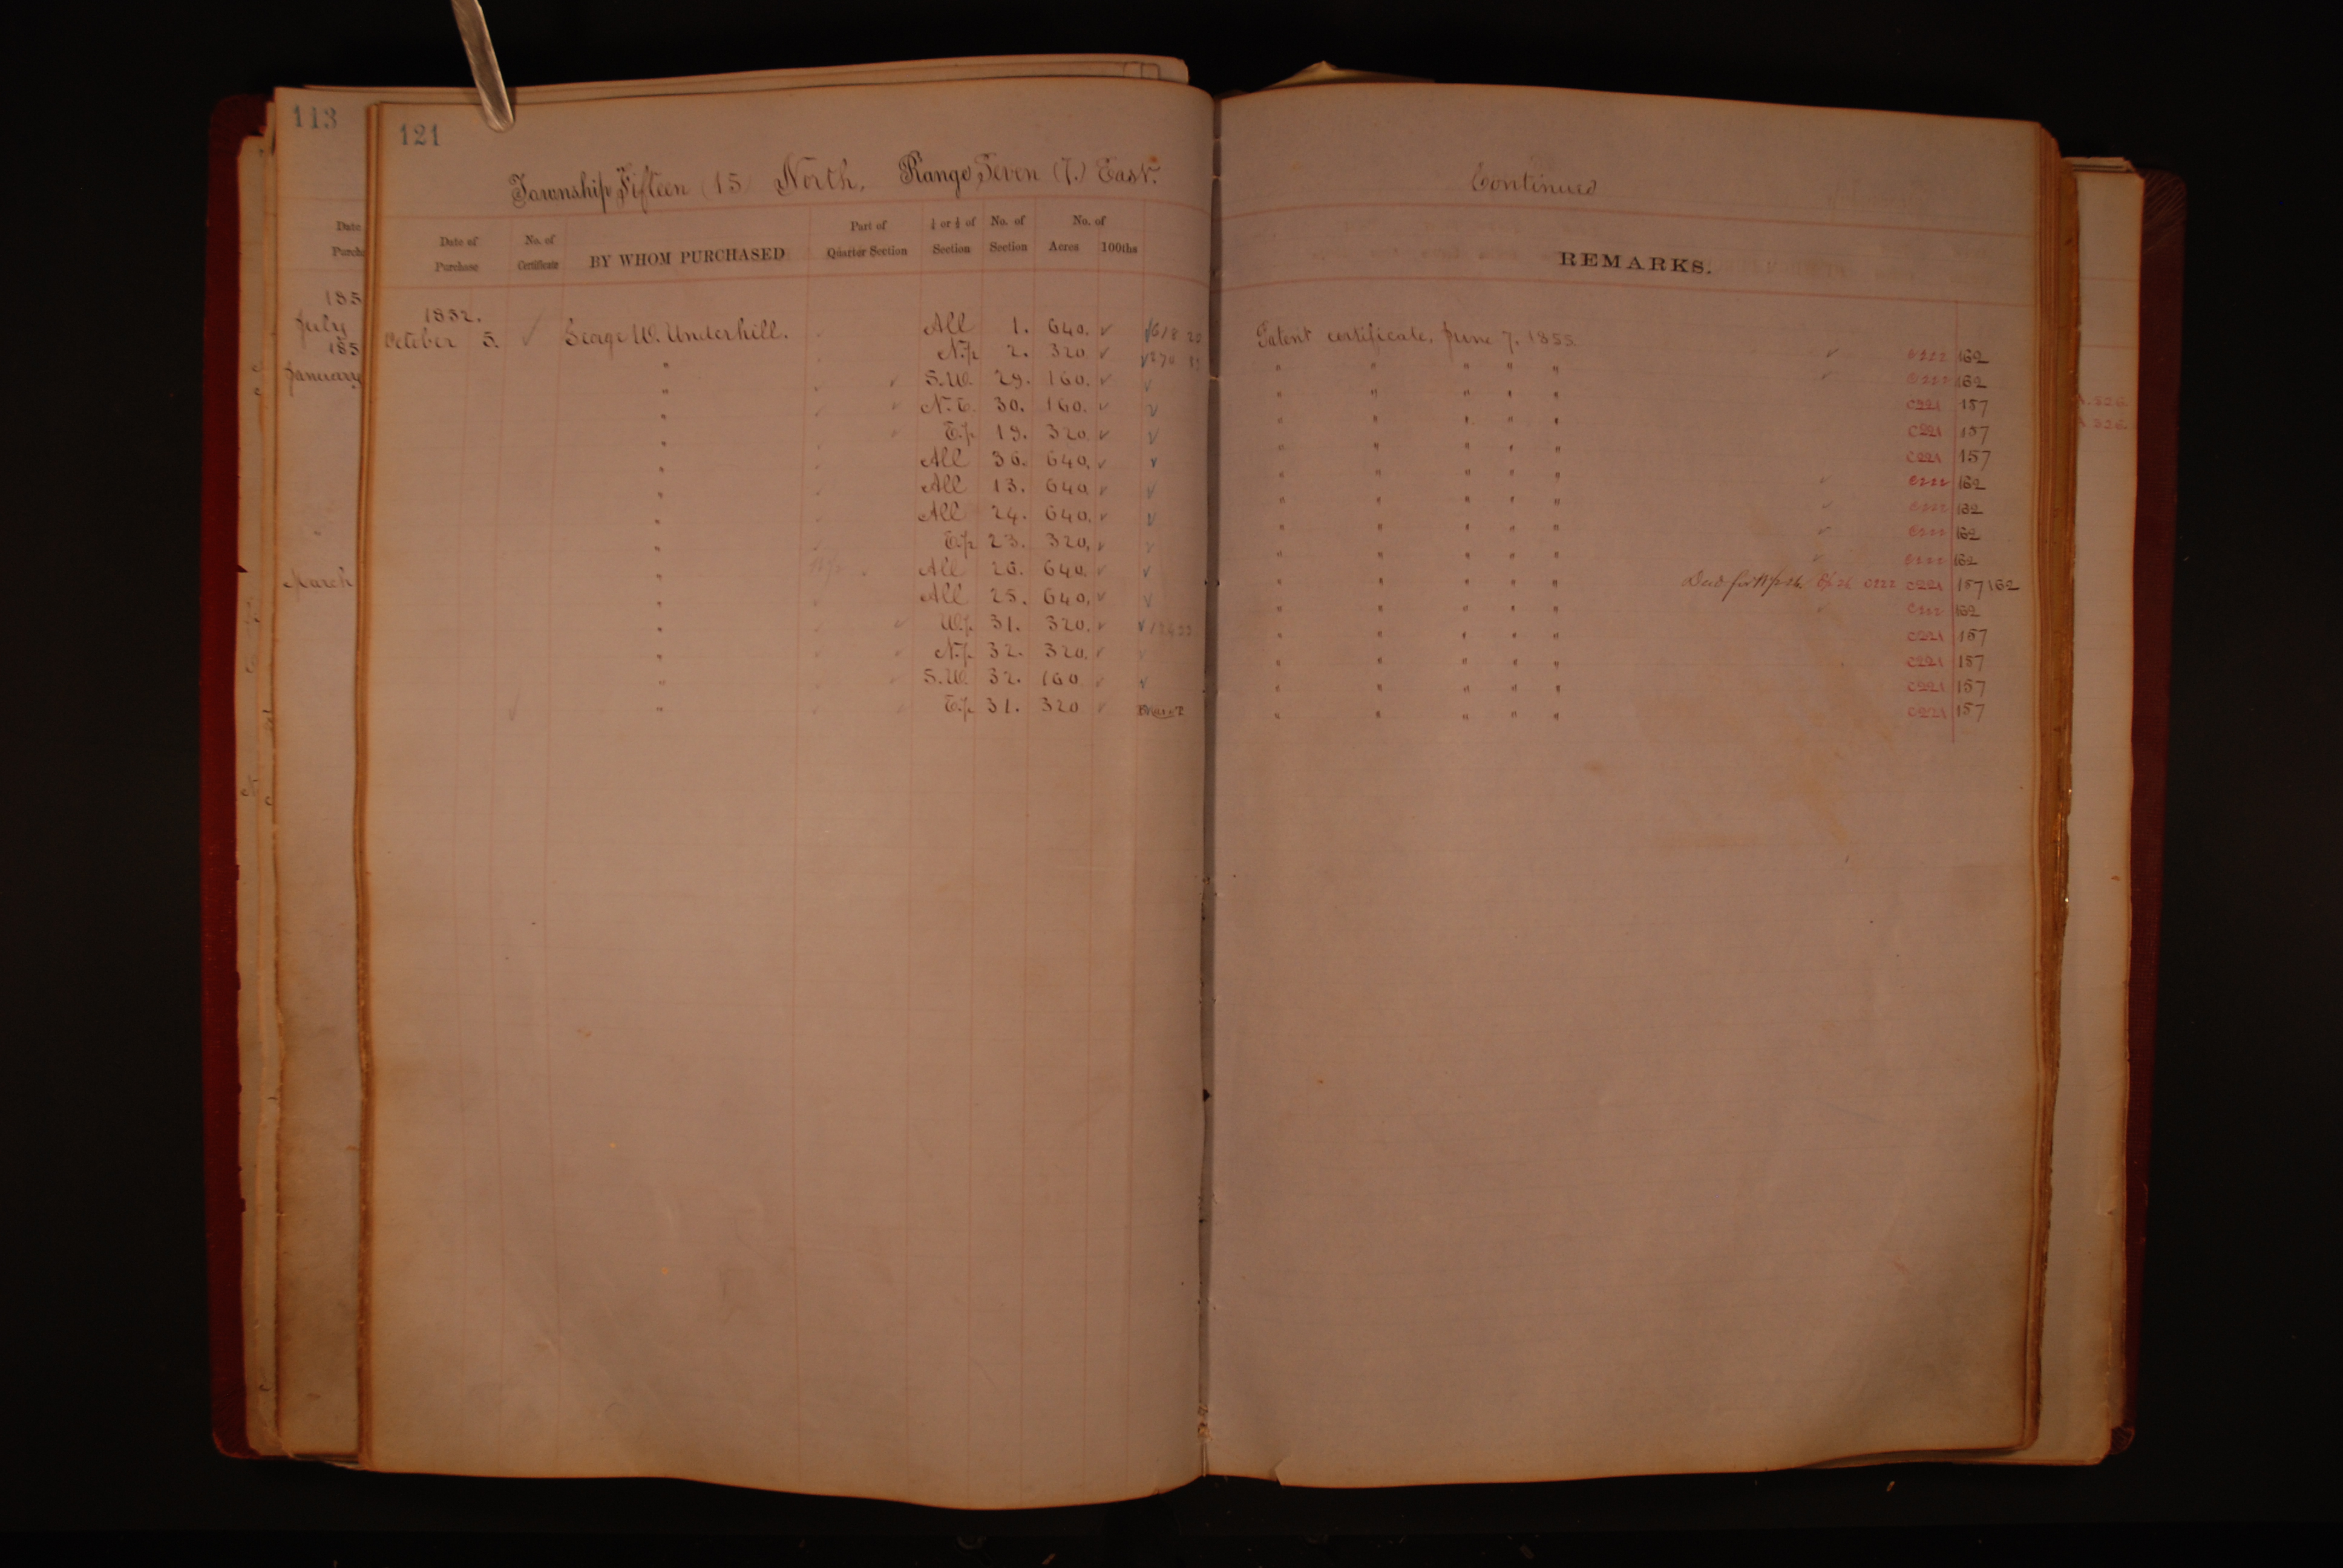 113
121
Township Fifteen (15) North, Range Seven (7.) East.
Continued
Date of Purchase No. of Certificate BY WHOM PURCHASED Part of Quarter Section ¼ or ½ of Section No. of Section No. of Acres 100ths REMARKS.
1852.
October 5. ✓ George W. Underhill. All 1. 640. ✓ Patent certificate, June 7. 1855.
" N.½ 2. 320 ✓ " " " " " ✓ C222 162
" S.W. 29. 160. ✓ ✓ " " " " " ✓ C222 162
" N.E. 30. 160. ✓ ✓ " " " " " C221 157
" E.½ 19. 320 ✓ ✓ " " " " " C221 157
" All 36. 640. ✓ ✓ " " " " " C221 157
" All 13. 640 ✓ ✓ " " " " " ✓ C222 162
" All 24. 640. ✓ ✓ " " " " " ✓ C222 162
" E.½ 23. 320. ✓ ✓ " " " " " ✓ C222 162
" All 26. 640. ✓ ✓ " " " " " ✓ C222 162
" All 25. 640. ✓ ✓ " " " " " C222 C221 157 162
" W.½ 31. 320. ✓ ✓ " " " " " C222 162
" N.½ 32. 320. ✓ " " " " " C221 157
" S.W. 32. 160 ✓ ✓ " " " " " C221 157
" E.½ 31. 320 ✓ " " " " " C221 157
C221 157
Date
Purch
185
July
185
January
March